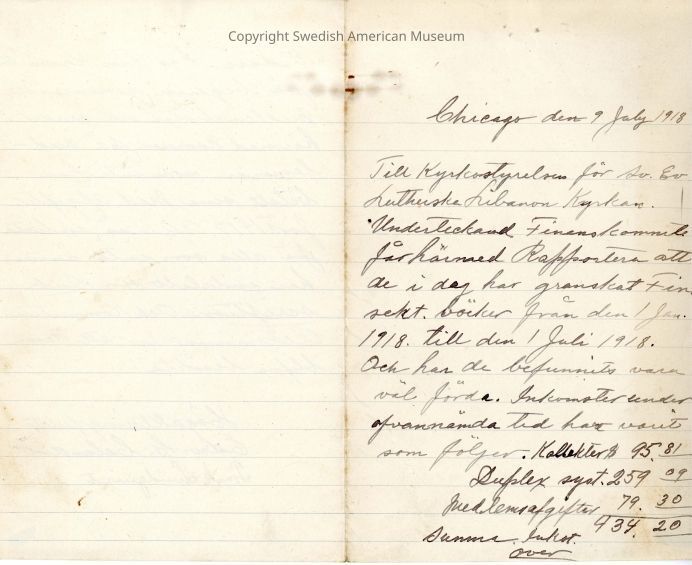 Copyright Swedish American Museum
Chicago den 9 July 1918
Till Kyrkostyrelsen för Sv. Ev
Lutherska Libanon Kyrkan.
Undertecknad Finanskommité
får härmed Rapportera att
de i dag har granskat Fin.
sekt. böcker från den 1 Jan.
1918. till den 1 Juli 1918.
Och har de befunnits vara
väl förda. Inkomster under
ofvannämda tid har varit
som följer. Kollekter $ 95.81
Duplex syst. 259 09
Medlemsafgifter 79. 30
Summa Inkst. 434. 20
over